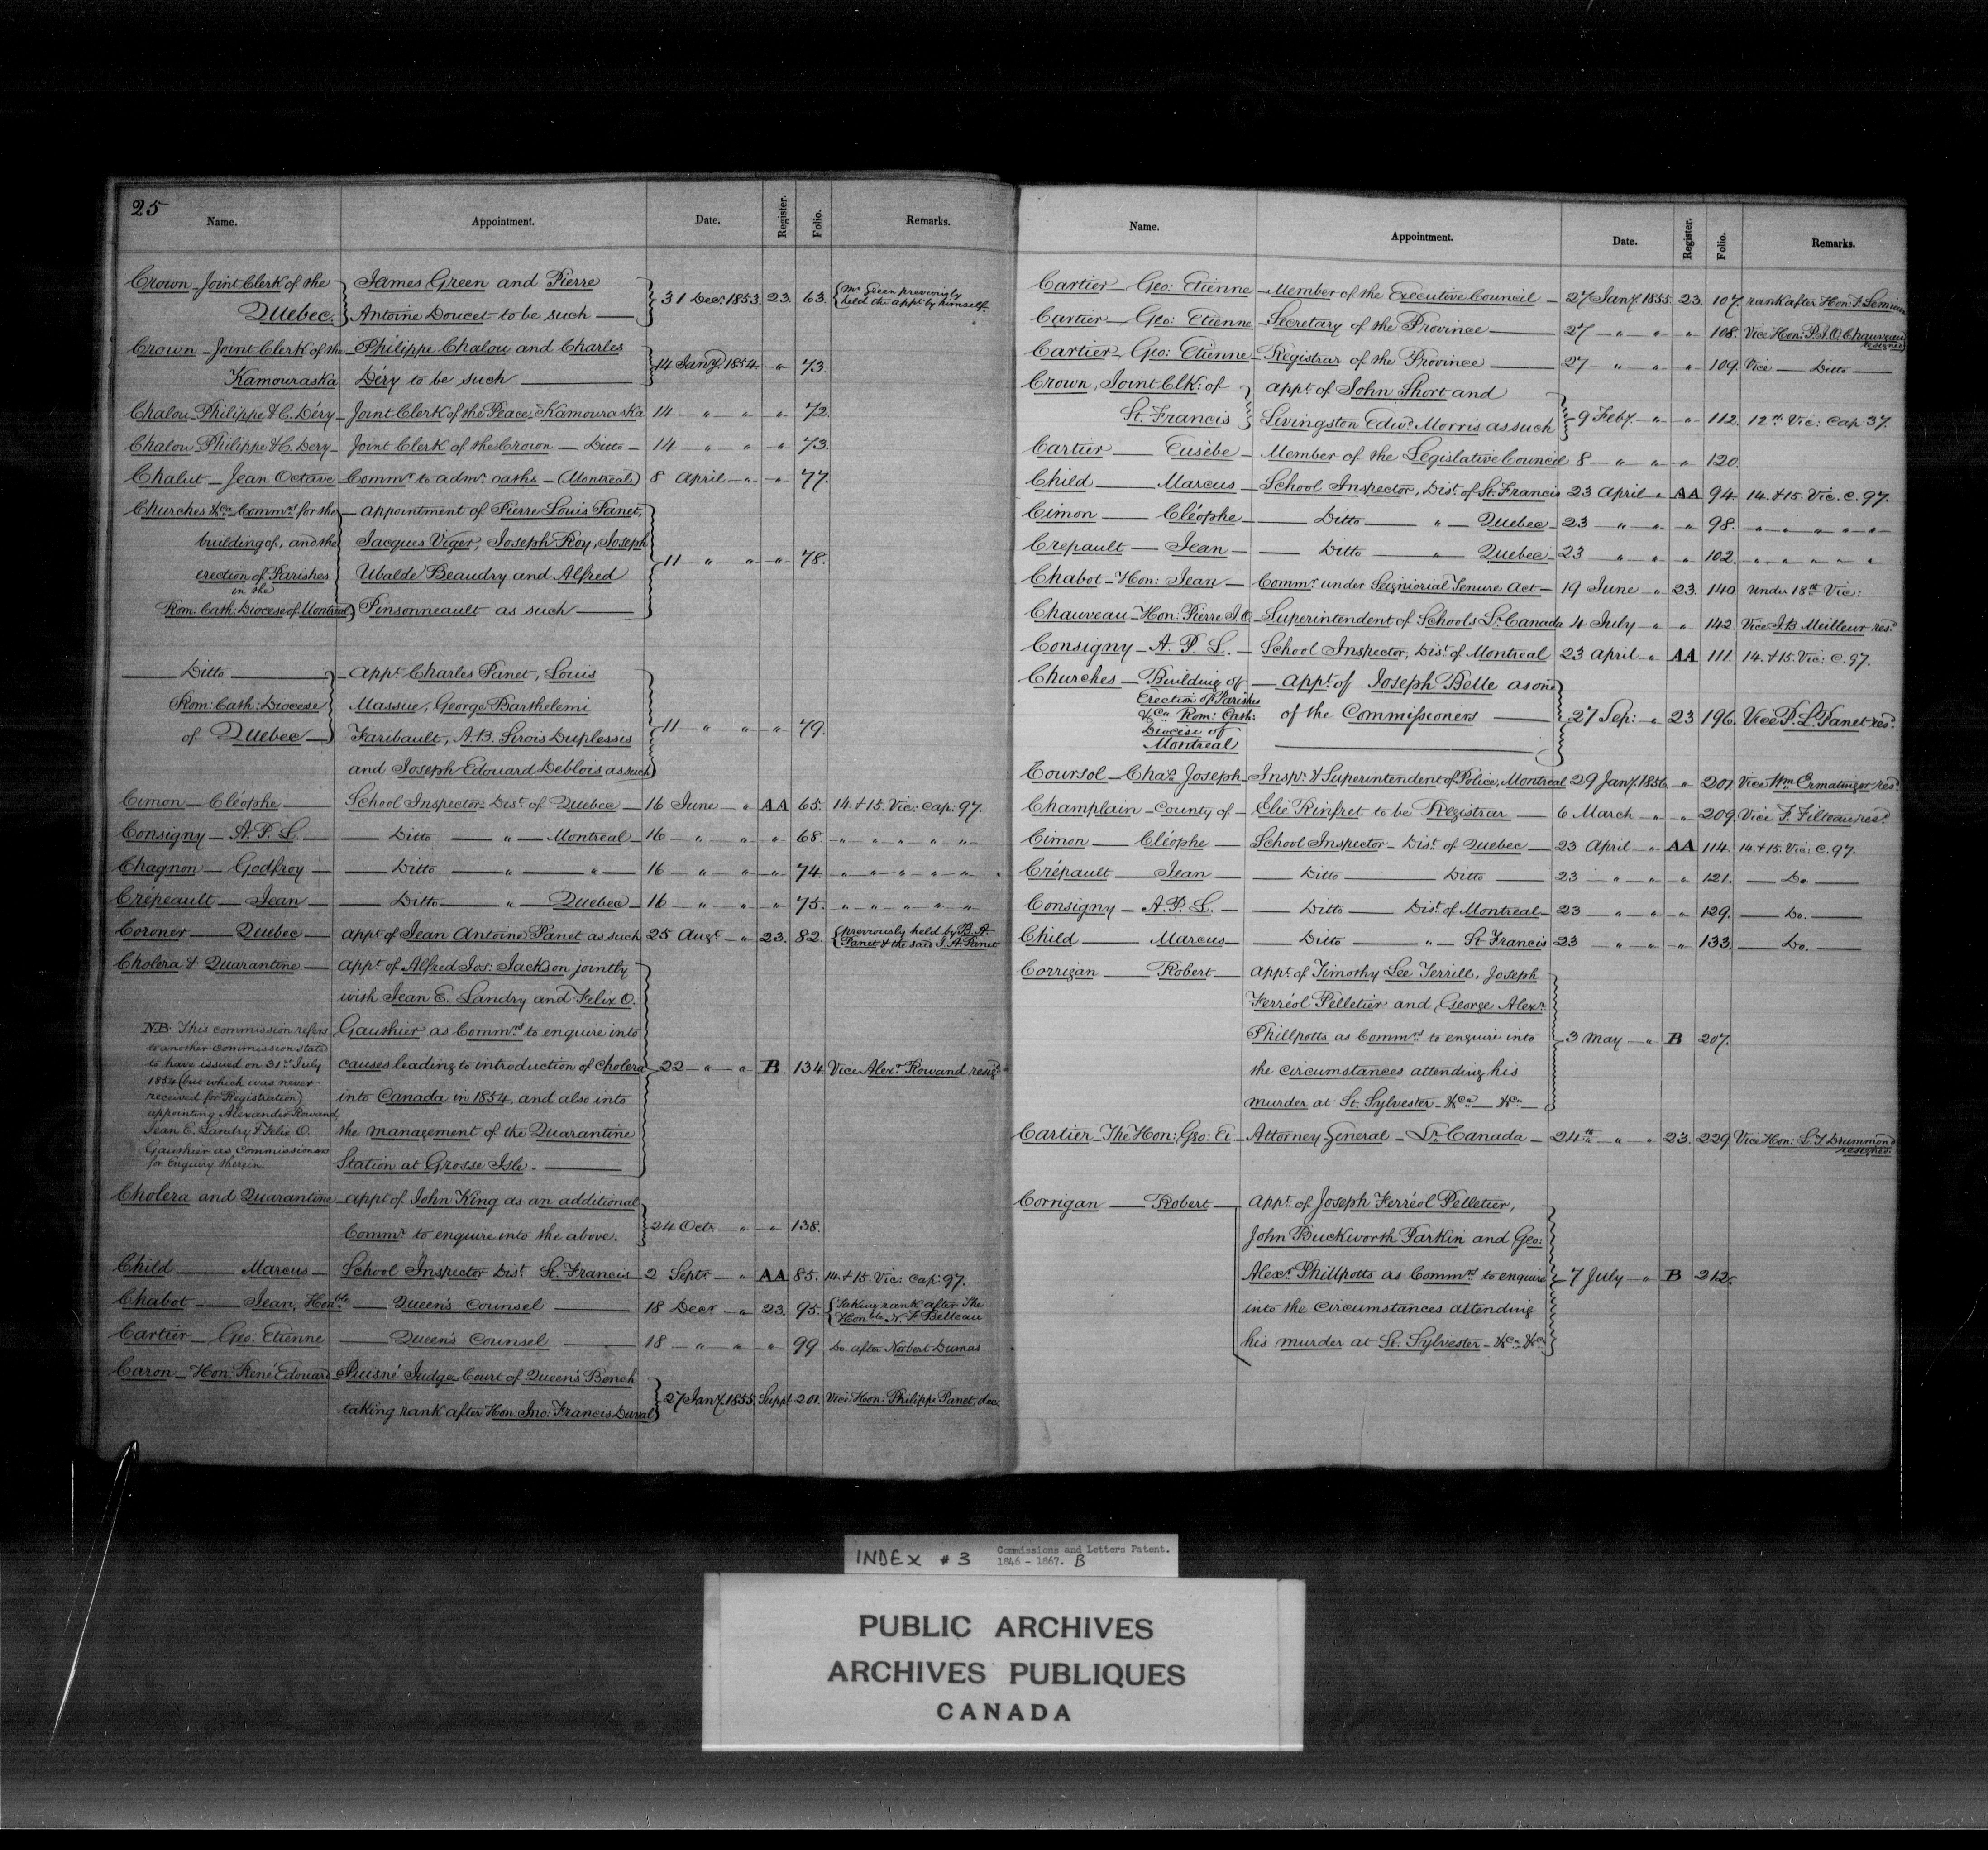 25
Name. Appointment. Date. Register. Folio. Remarks.
Crown - Joint Clerk of the James Green and Pierre 31 Decr. 1853. 23. 63. Mr. Green previously
Quebec. Antoine Doucet to be such held the appt. by himself.
Crown - Joint Clerk of the - Philippe Chalou and Charles 14 Jany. 1854 - " - 73.
Kamouraska Déry to be such
Chalou Philippe & C. Déry - Joint Clerk of the Peace, Kamouraska 14 - " - " - " - 72.
Chalou Philippe & C. Dery - Joint Clerk of the Crown - Ditto - 14 - " - " - " - 73.
Chalut - Jean Octave Commr. to admr. oaths - (Montreal) 8 April - " - " - 77.
Churches &ca. Commrs. for the - appointment of Pierre Louis Panet,
building of, and the Jacques Viger, Joseph Roy, Joseph
erection of Parishes Ubalde Beaudry and Alfred 11 - " - " - " - 78.
in the
Rom: Cath: Diocese of Montreal) Pinsonneault as such
Ditto - Appt. Charles Panet, Louis
Rom: Cath: Diocese Massue, George Barthelemi
of Quebec Faribault, A.B. Sirois Duplessis 11 - " - " - " - 79.
and Joseph Edouard Deblois as such
Cimon - Cléophe School Inspector - Dist. of Quebec - 16 June - " AA 65. 14. & 15. Vic: Cap: 97.
Consigny - A. P. L. - Ditto - " - Montreal - 16 - " - " - " - 68 - " - " - " - " - " -
Chagnon - Godfroy - Ditto - " - " - 16 - " - " - " - 74. - " - " - " - " - " -
Crépeault - Jean - Ditto - " - Quebec - 16 - " - " - " 75. - " - " - " - " - " -
Coroner - Quebec - appt. of Jean Antoine Panet as such 25 Augt. - " 23. 82. previously held by B. A.
Panet & the said J. A. Panet
Cholera & Quarantine - Appt. of Alfred Jos: Jackson jointly
with Jean E. Landry and Felix O.
NB. This commission refers Gauthier as Commrs. to enquire into
to another commission stated
to have issued on 31st. July causes leading to introduction of Cholera 22 - " - " B 134 Vice Alexr. Rowand resigd.
1854 (but which was never
received for Registration) into Canada in 1854, and also into
appointing Alexander Rowand
Jean E. Landry & Felix O. the management of the Quarantine
Gauthier as Commissioners
for Enquiry therein. Station at Grosse Isle.
Cholera and Quarantine - appt. of John King as an additional 24 Octr. - " - " - 138.
Commr. to enquire into the above.
Child - Marcus - School Inspector Dist. St. Francis 2 Septr. - " AA 85. 14. & 15. Vic: Cap: 97.
Chabot - Jean, Honble. - Queen's Counsel - 18 Decr - " 23. 95. Taking rank after The
Honble N. F. Belleau
Cartier - Geo: Etienne - Queen's Counsel - 18 - " - " " 99 Do. after Norbert Dumas
Caron - Hon: René Edouard Puisné Judge Court of Queen's Bench
taking rank after Hon: Jno: Francis Duval 27 Jany. 1855. Suppt 201. Vice Hon: Philippe Panet, dec:
Name. Appointment. Date. Register. Folio. Remarks.
Cartier - Geo: Etienne - Member of the Executive Council - 27 Jany. 1855. 23. 107. rank after Hon: F. Lemieux
Cartier - Geo: Etienne - Secretary of the Province - 27 - " - " - " - 108. Vice Hon: P. J. O. Chauveau
resigned
Cartier - Geo: Etienne - Registrar of the Province - 27 - " - " - " - 109. Vice - Ditto -
Crown, Joint Clk: of appt. of John Short and
St. Francis Livingston Edwd. Morris as such 9 Feby. - " - " - 112. 12th. Vic: Cap: 37.
Cartier - Eusèbe - Member of the Legislative Council 8 - " - " - " - 120.
Child - Marcus - School Inspector, Dist. of St. Francis 23 April " AA 94. 14. & 15. Vic. C. 97.
Cimon - Cléophe - Ditto - " - Quebec - 23 - " - " - " - 98. - " - " - " - " - " -
Crepault - Jean - Ditto - " Quebec - 23 " - " - " 102. " - " - " - " - "
Chabot - Hon: Jean - Commr. under Seigniorial Tenure Act - 19 June - " 23. 140. Under 18th Vic:
Chauveau - Hon: Pierre J. O. - Superintendent of Schools Lr. Canada 4 July - " - " 142. Vice J. B. Meilleur resd.
Consigny - A. P. L. - School Inspector, Dist. of Montreal 23 April - " AA 111. 14. & 15. Vic: C. 97.
Churches - Building of - appt. of Joseph Belle as one
Erection of Parishes
&Ca. Rom: Cath: of the Commissioners - 27 Sep: - " 23 196. Vice P. L. Panet resd.
Diocese of
Montreal
Coursol - Chas. Joseph - Inspr. & Superintendent of Police, Montreal 29 Jany. 1856. - " - 201. Vice Wm Ermatinger resd.
Champlain - County of - Elie Rinfret to be Registrar - 6 March - " - " 209. Vice F. Filteau, resd.
Cimon - Cléophe - School Inspector - Dist. of Quebec - 23 April - " AA 114. 14. & 15. Vic: C. 97.
Crépault - Jean - Ditto - Ditto - 23 - " - " - " 121. - Do. -
Consigny - A. P. L. - Ditto - Dist. of Montreal - 23 - " - " - " 129. - Do. -
Child - Marcus - Ditto - " - St. Francis 23 - " - " - " 133. - Do. -
Corrigan - Robert - Appt. of Timothy Lee Terrill, Joseph
Ferréol Pelletier and George Alexr.
Phillpotts as Commrs. to enquire into 3 May - " B 207.
the circumstances attending his
murder at St. Sylvester - &ca - &ca -
Cartier - The Hon: Geo: Et - Attorney General - Lr. Canada - 24th - " - " 23. 229. Vice Hon: L. T. Drummond
resigned.
Corrigan - Robert - Appt. of Joseph Ferréol Pelletier,
John Buckworth Parkin and Geo:
Alexr. Phillpotts as Commrs. to enquire 7 July - " B 212.
into the circumstances attending
his murder at St. Sylvester - &Ca. &Ca.
INDEX #3 Commissions and Letters Patent.
1846 - 1867. B
PUBLIC ARCHIVES
ARCHIVES PUBLIQUES
CANADA